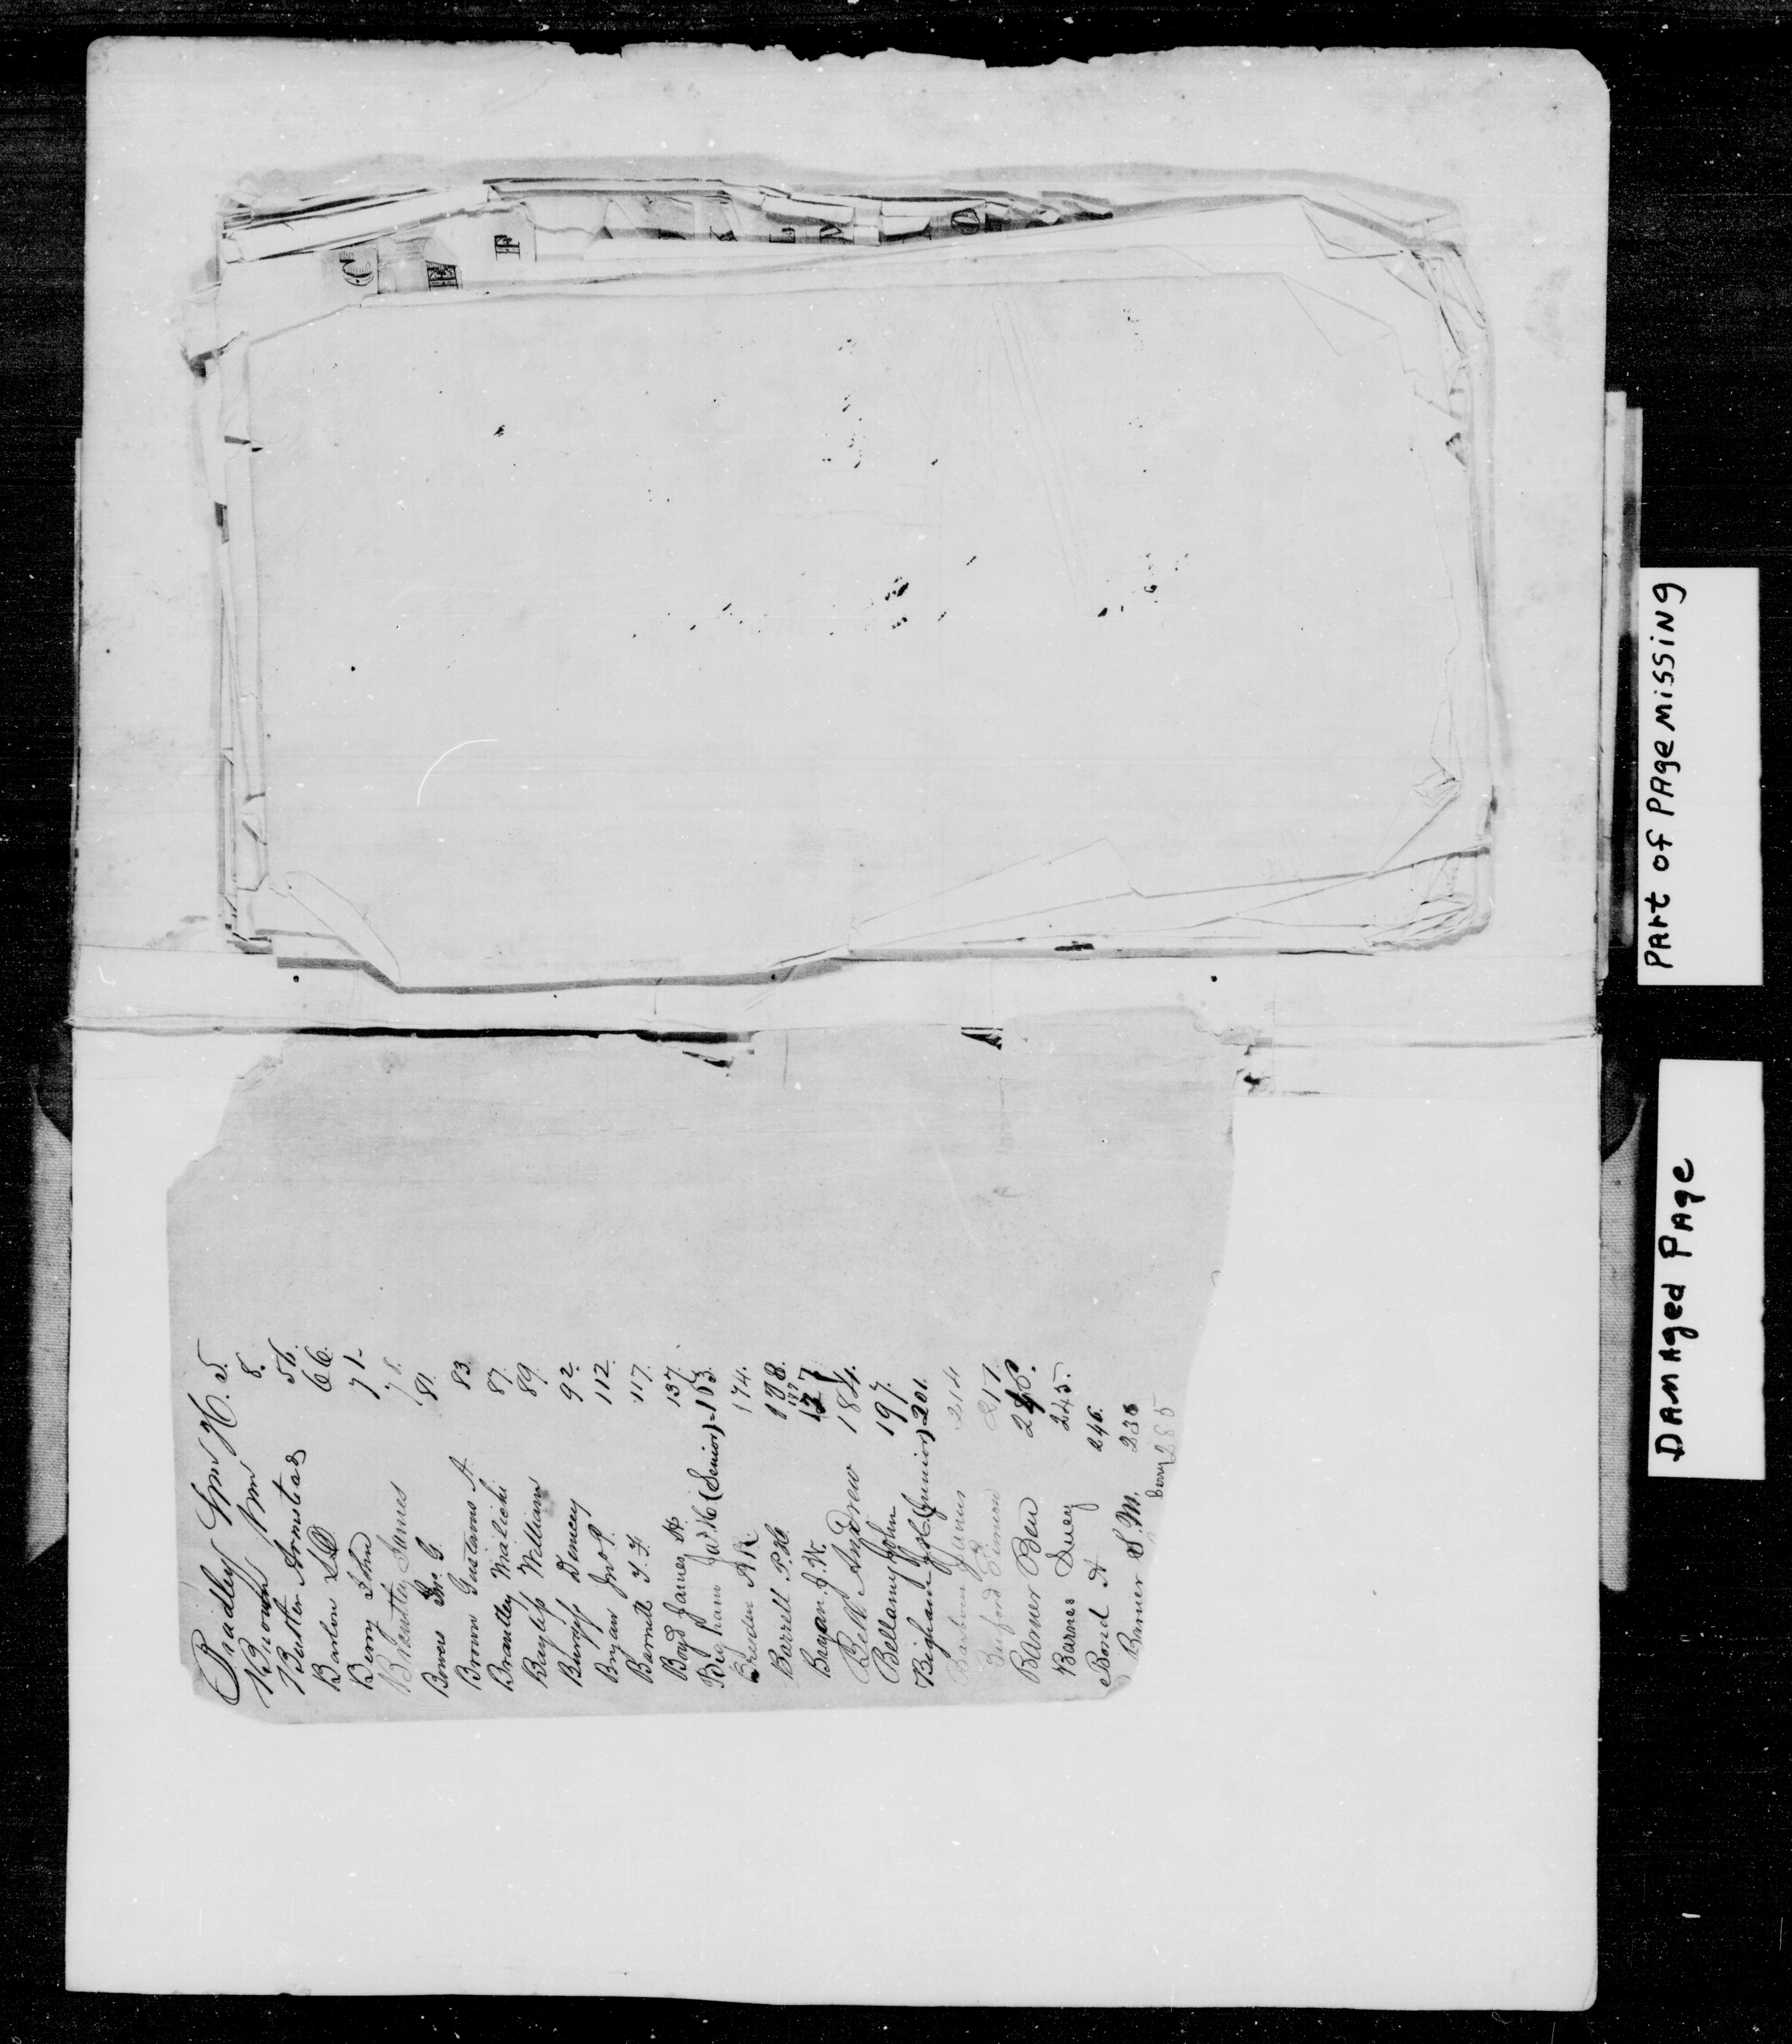 Part of Page Missing
Damaged Page
C
E
F
J
K
L
M
O
Bradley Wm H. 5.
Brown Wm 8.
Buster Armstead 56.
Barlow L D 66.
Berry John 71
Brantley James 78.
Bowers Geo. G. 81.
Brown Gustavus A. 83.
Brantley Malichi 87.
Bayliss William 89.
Burgess Demcey 92.
Bryan Jno. P. 112.
Barnett T. F. 117.
Boyd James A 137.
Bigham Jas. H (Senior) 163.
A R. 174.
Barrell P. H. 178.
Bryan J. W. 177
Bell Andrew 184.
Bellamy John 197.
Bigham J H (Junior) 201.
James 214
Buford Simeon 217
Barner Ben
Barnes 245.
Bond A 246.
Barner S. M.
Berry 285